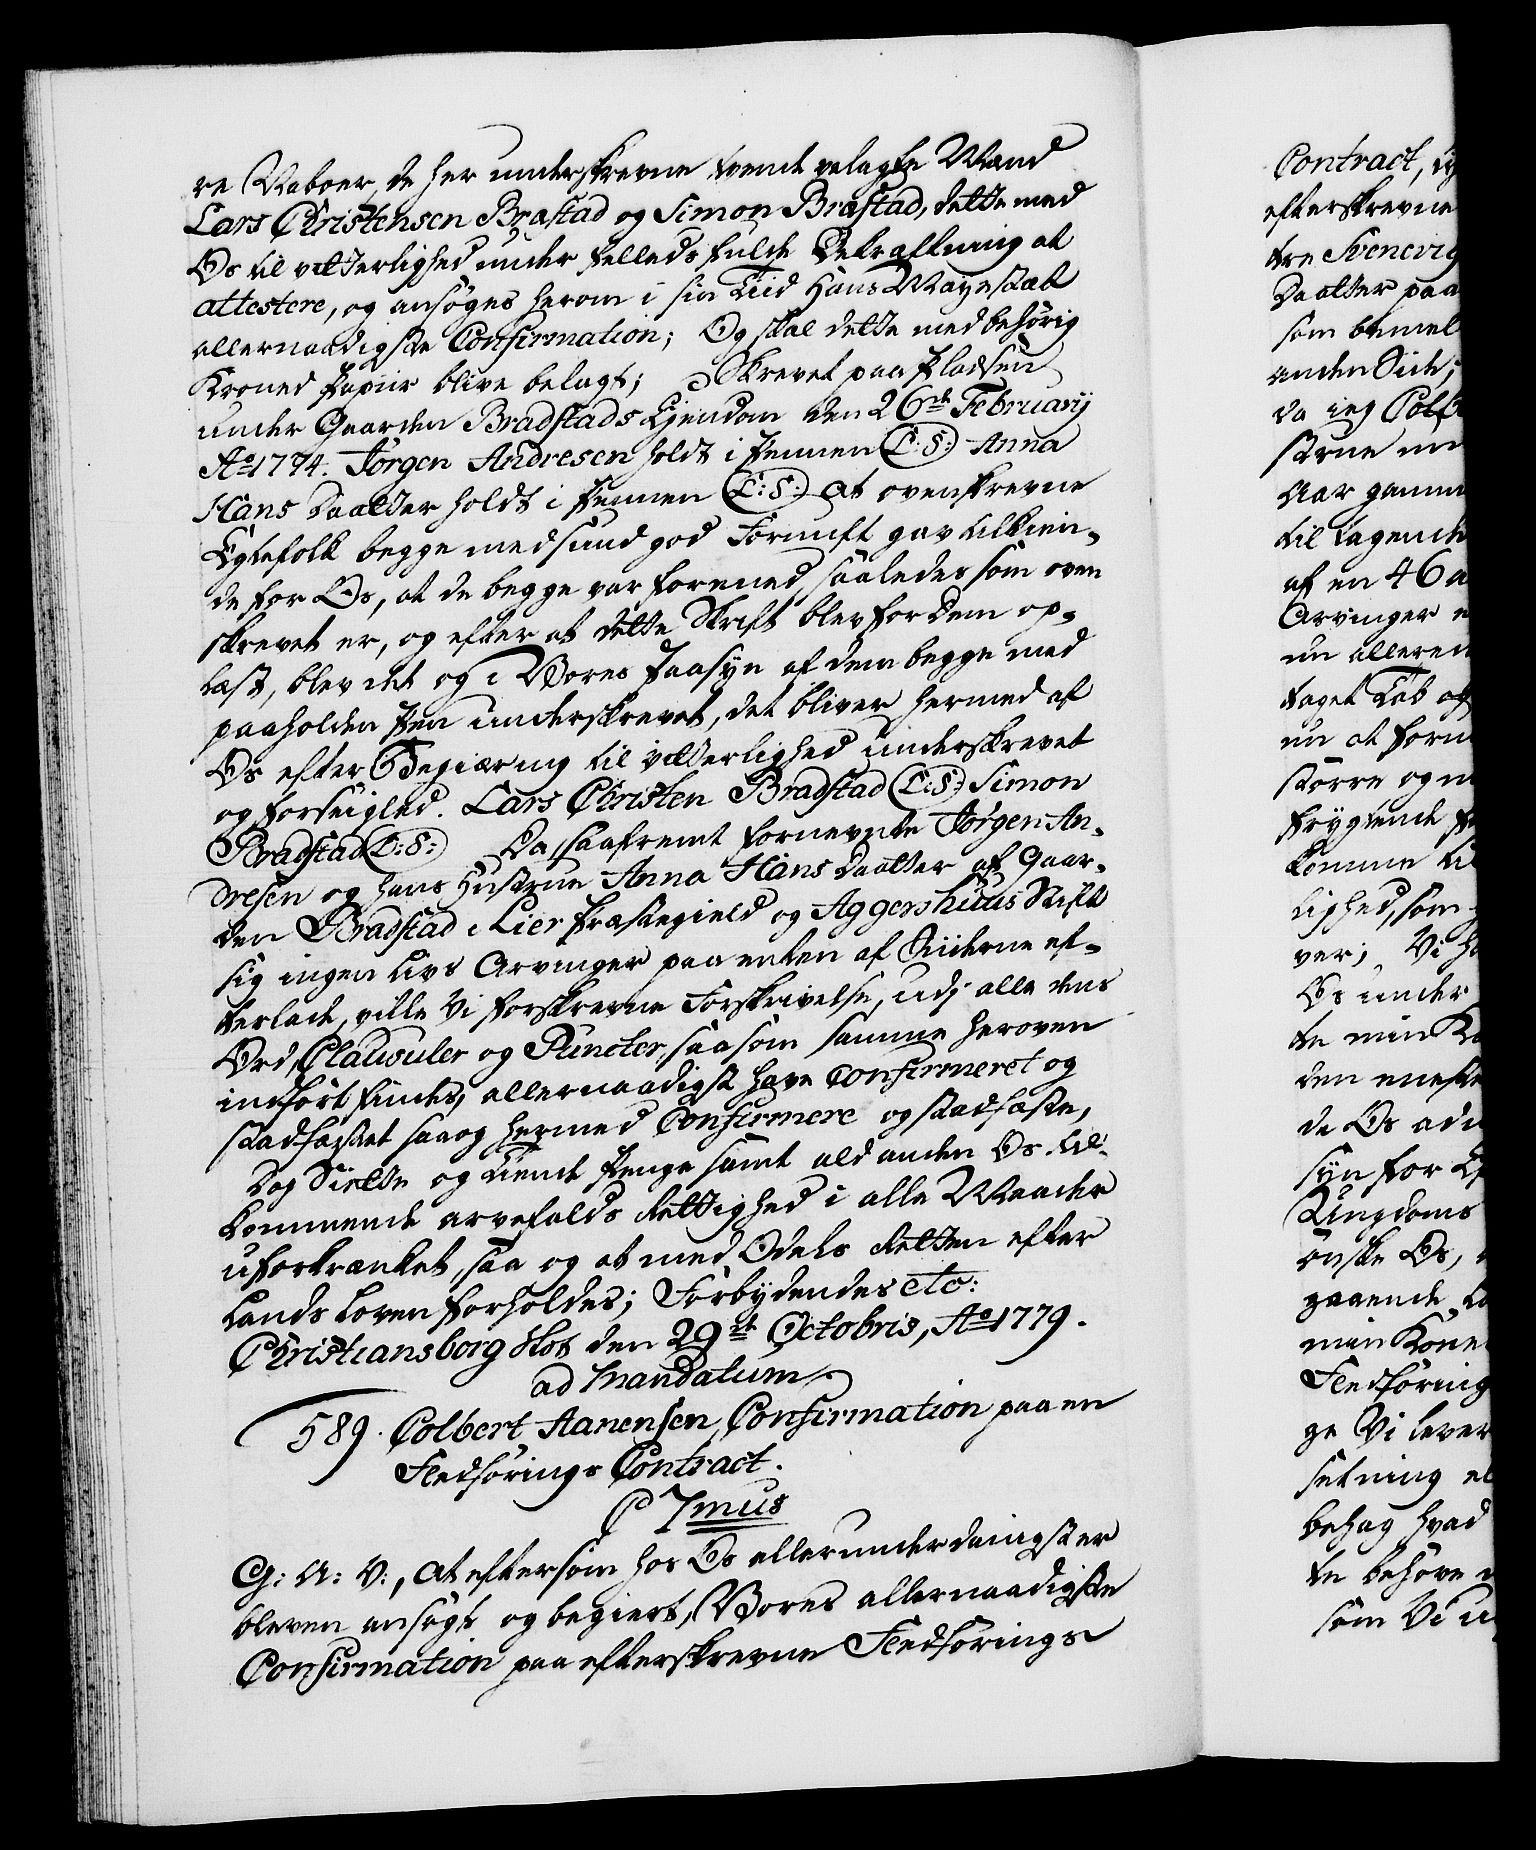 re Naboer, de her underskrevne tvende velagte Mænd
Lars Christensen Brastad og Simon Brastad, dette med
Os til vitterlighed under fælleds fulde Bekræftning at
attestere, og ansøges herom i sin Tiid Hans Mayestæt
allernaadigste Confirmation; Og skal dette med behørig
Kroned Papiir blive belagt; Skrevet paa Pladsen
under Gaarden Bradstads Ejendom den 26de Februarij
Ao 1774. Jørgen Andresen holdt i Pennen (L:S:) Anna
Hans Daatter holdt i Pennen (L:S:) At ovenskrevne
Egtefolk begge med sund god Fornuft gav tilkien-
de for Os, at de begge var forened saaledes som oven
skrevet er, og efter at dette Skrift blev for dem op-
læst, blev det og i Vores Paasyn af dem begge med
paaholden Pen underskrevet, det bliver hermed af
Os efter Begiæring til vitterlighed underskrevet
og forseigled. Lars Christen Bradstad (L:S:) Simon
Bradstad (L:S:) Da saafremt fornevnte Jørgen An-
dresen og hans Hustrue Anna Hans Daatter af Gaar-
den Bradstad i Lier Præstegield og Aggershuus Stift
sig ingen Livs Arvinger paa enten af Siiderne ef-
terlade, ville Vi forskrevne Forskrivelse, udj alle dens
Ord, Clausuler og Puncter, saasom samme heroven
indført findes, allernaadigst have Confirmeret og
stadfæstet saa og hermed Confirmere og stadfæste,
Dog Siette og Tiende Penge samt ald anden Os til-
kommende arvefalds Rettighed i alle Maader
uforkrænket, saa og at med Odels Retten efter
Lands Loven forholdes; Forbydendes etc:
Christiansborg Slot den 29de Octobris, Ao 1779.
ad Mandatum
589. Colbert Aanensen, Confirmation paa en
Fledførings Contract.
C 7mus
G: A: V:, At eftersom hos Os allerunderdanigst er
bleven ansøgt og begiert, Vores allernaadigste
Confirmation paa efterskrevne Fledførings
Contract,
efterskrevne
tre Svenevig
Daatter paa
som bemel
anden Side;
da jeg Colb
strue
Aar gamm
til tagende
af en 46 a
Arvinger
nu alleree
taget Tab og
nu at forn
større og
frygtende
komme til
lighed, som
ver; Vi
Os under
te min Ko
den eneste
de Os
syn for
Ungdoms
ønske Os,
gaaende
min Kone
Fledføring
ge Vi lever
setning
behag hvad
te behøve
som Vi